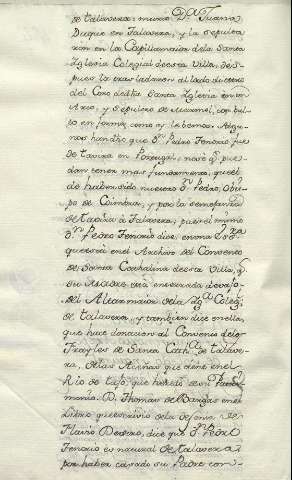 de talavera: murio D.ª Juana
Duque en Talavera, y la sepulta
ron en la Capilla mayor de la Santa
Yglesia Colegial de esta Villa, des
pues la trasladaron al lado diestro
del Coro de dha Santa Yglesia en un
Arco, y sepulcro de Marmol, con bul
to en forma, como oy le bemos. Algu
nos han dho que D.n Pedro Tenorio, fue
de tavira en Portugal, no se q.e pue
dan tener mas fundamento, que el
de haber sido nuestro D.n Pedro, Obis
po de Coimbra, y por la semejanza
de tavira à Talavera; pues el mismo
D.n Pedro Tenorio dice, en una
que està en el Archivo del Convento
de Santa Cathalina de esta Villa, q.e
su Madre està enterrada devajo
del Altar maior de la Yg.ª Coleg.l
de talavera, y tambien dice en ella,
que hace donacion al Convento de los
Frayles de Santa Cath.ª de talave
ra, de las Aceñas que tiene en el
Rio de tajo, que heredò de su Patri
monio. D. Thomas de Bargas en el
Libro que escrivio de la defensa de
Flavio Dextro, dice que D.n Pedro
Tenorio es natural de talavera,
por haber casado su Padre con